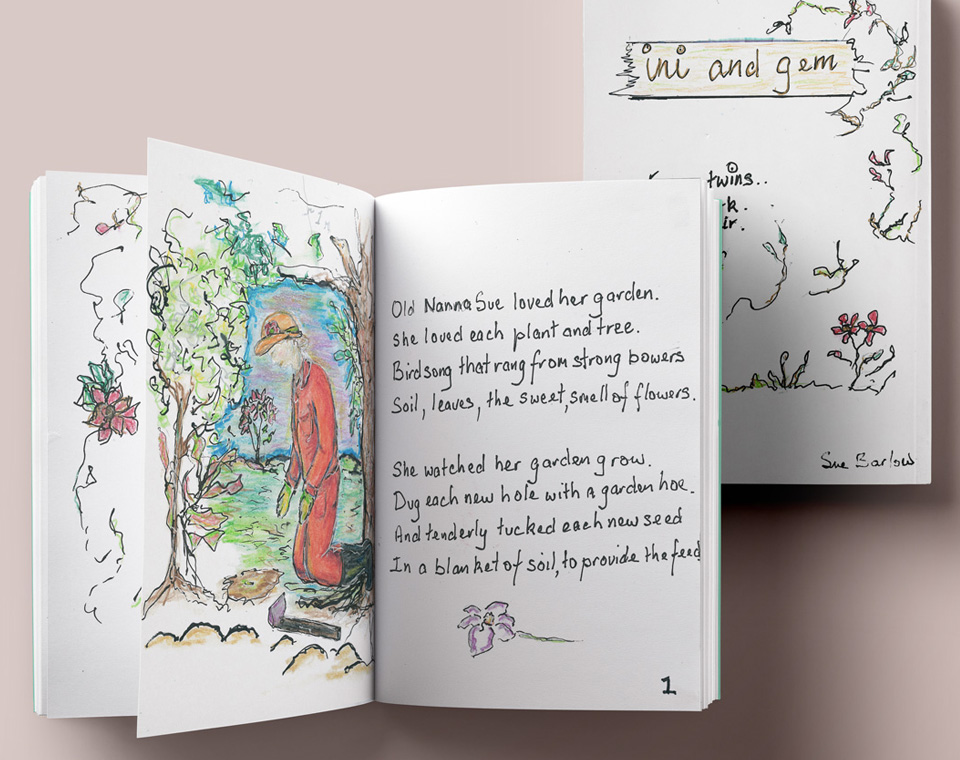 ini and gem
twins..
Sue Barlow
Old Nanna Sue loved her garden.
She loved each plant and tree.
Birdsong that rang from strong bowers
Soil, leaves, the sweet, smell of flowers.
She watched her garden grow.
Dug each new hole with a garden hoe.
And tenderly tucked each new seed
In a blanket of soil, to provide the feed
1